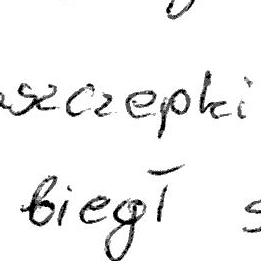 szczepki
biegł